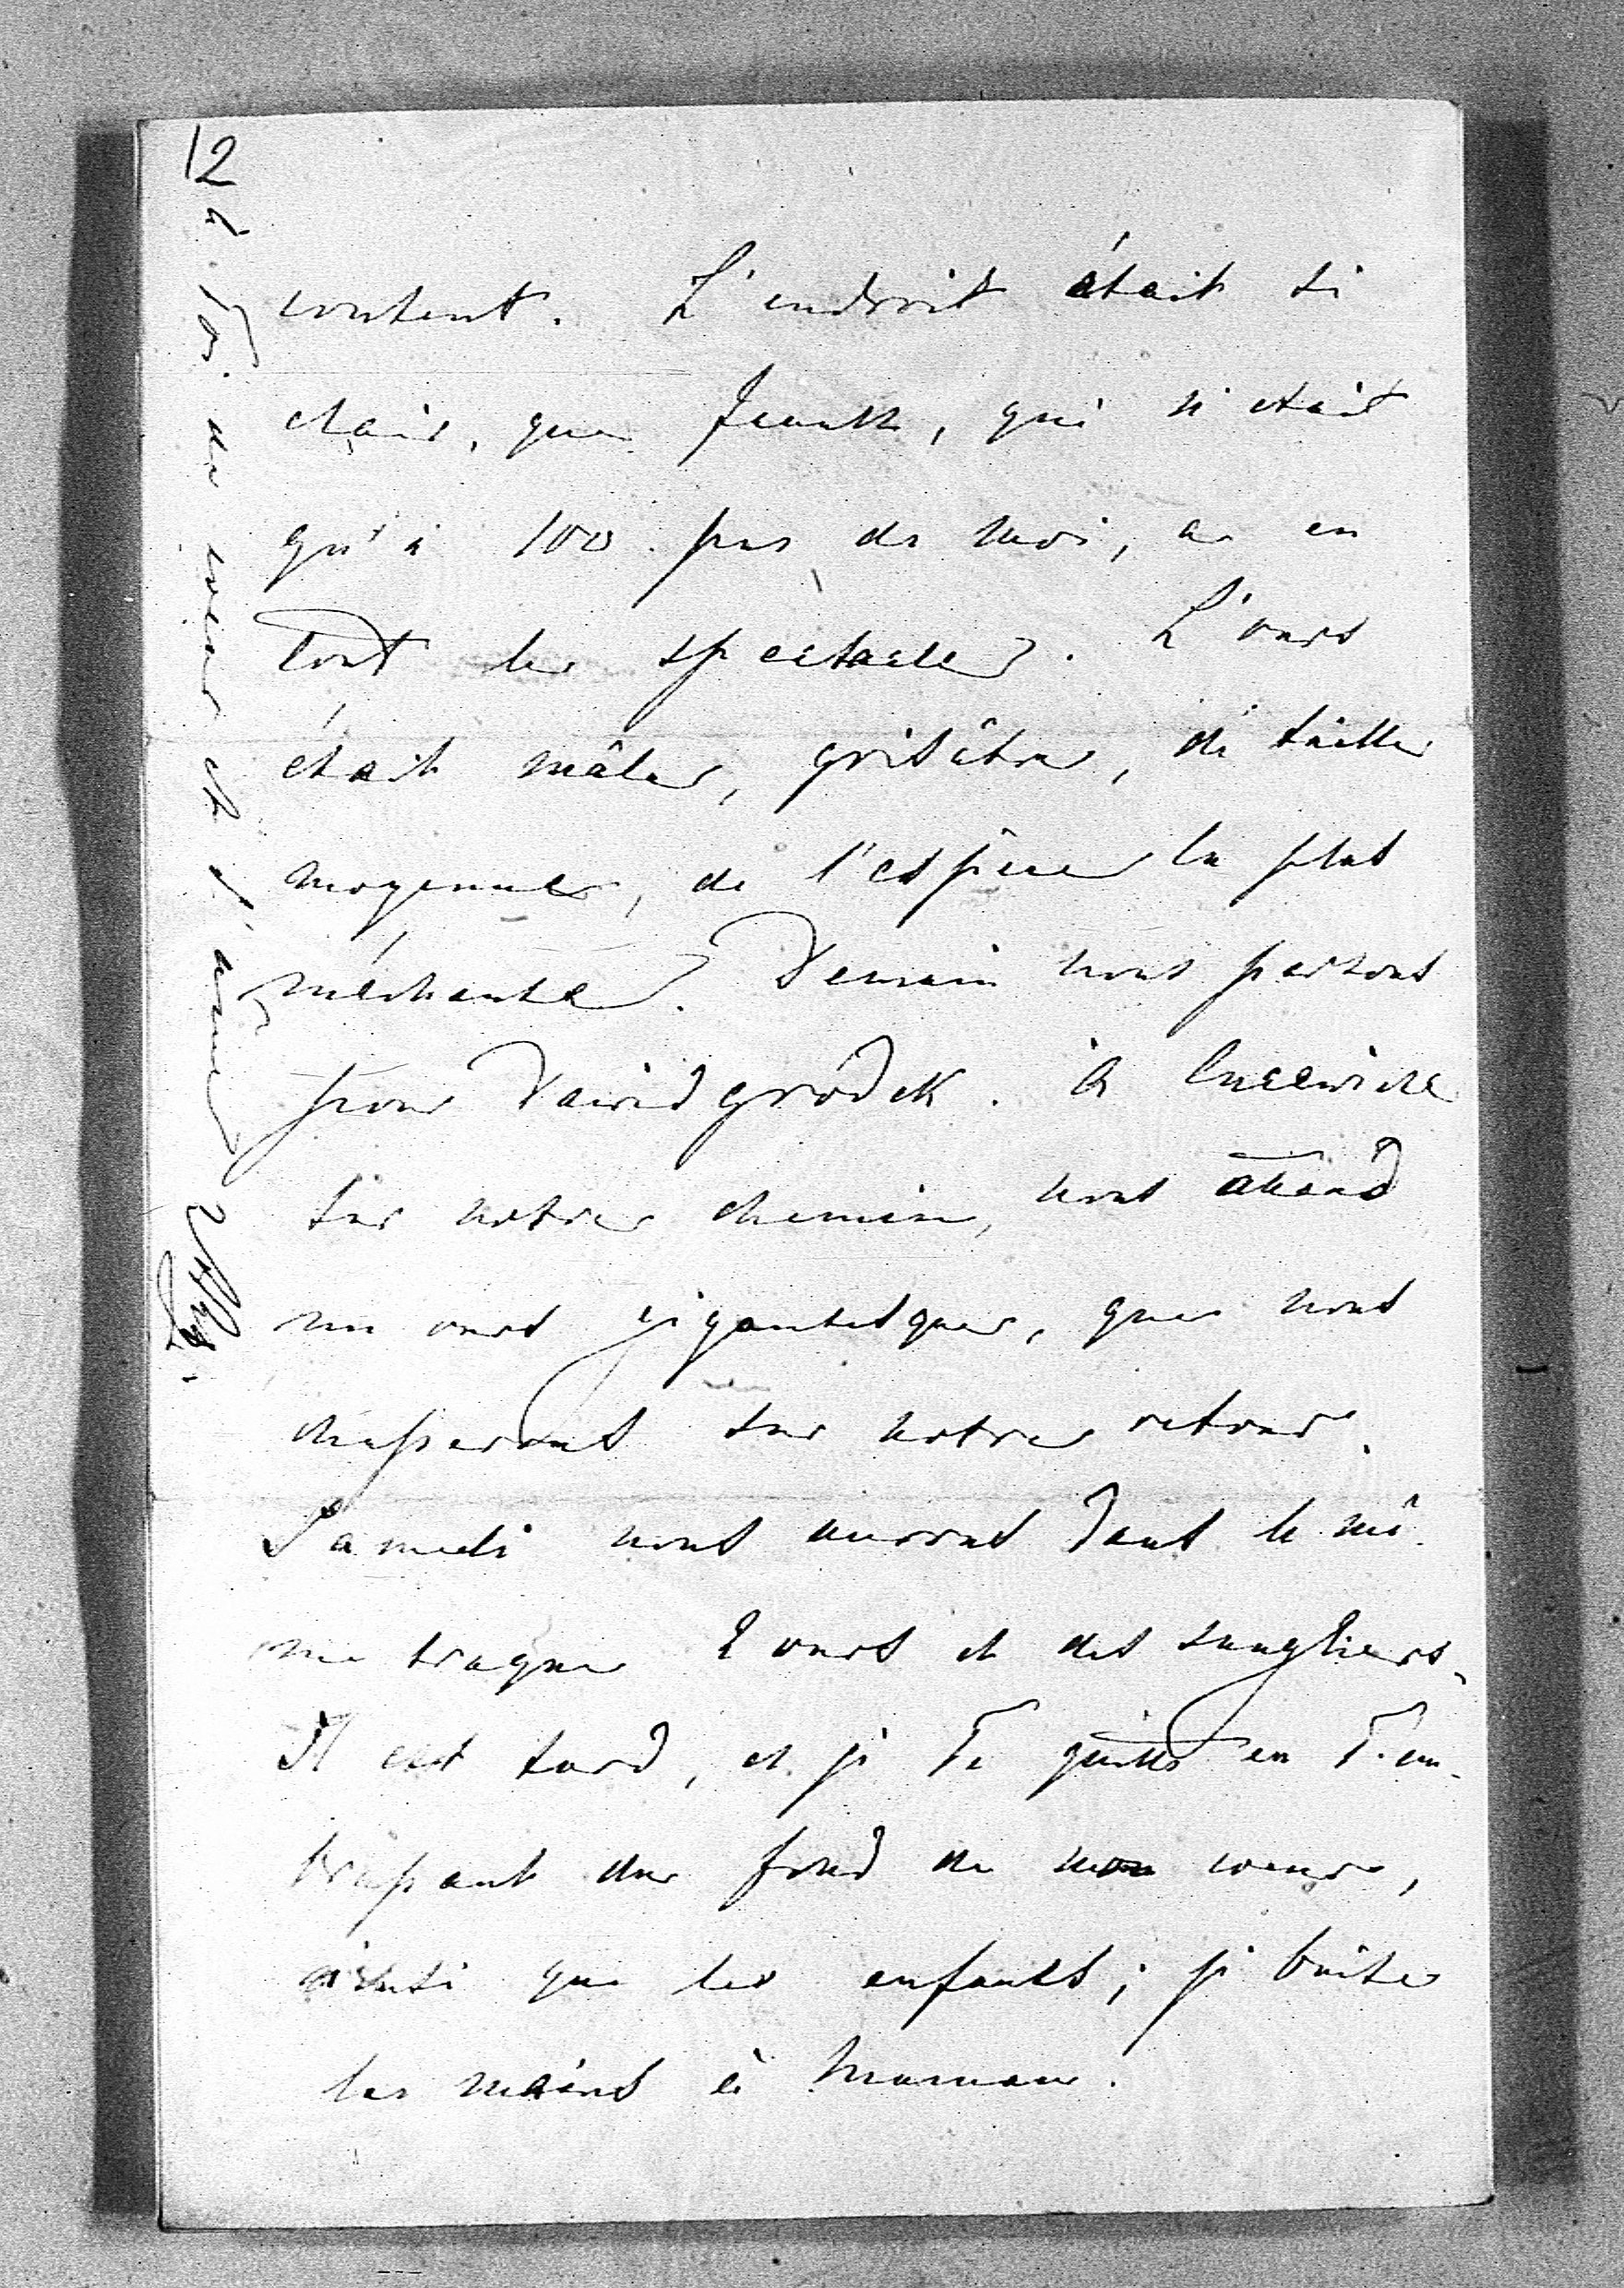 12
content. L'endroit était si
clair, que , qui n'était
qu'à 100 pas de moi, a eu
tout le spectacle. L'ours
était mâle, grisâtre, de taille
moyenne, de l'espèce la plus
méchante. Demain nous partons
pour Dawidgródek. à
sur notre chemin, nous attend
un ours gigantesque, que nous
chasserons sur notre retour.
Samedi nous aurons dans le mê-
me traque 2 ours et des sangliers.
Il est tard, et je Te quitte en T'em-
brassant du fond de mon coeur,
ainsi que les enfants; je baise
les mains à Maman.
à Toi de coeur et d'âme